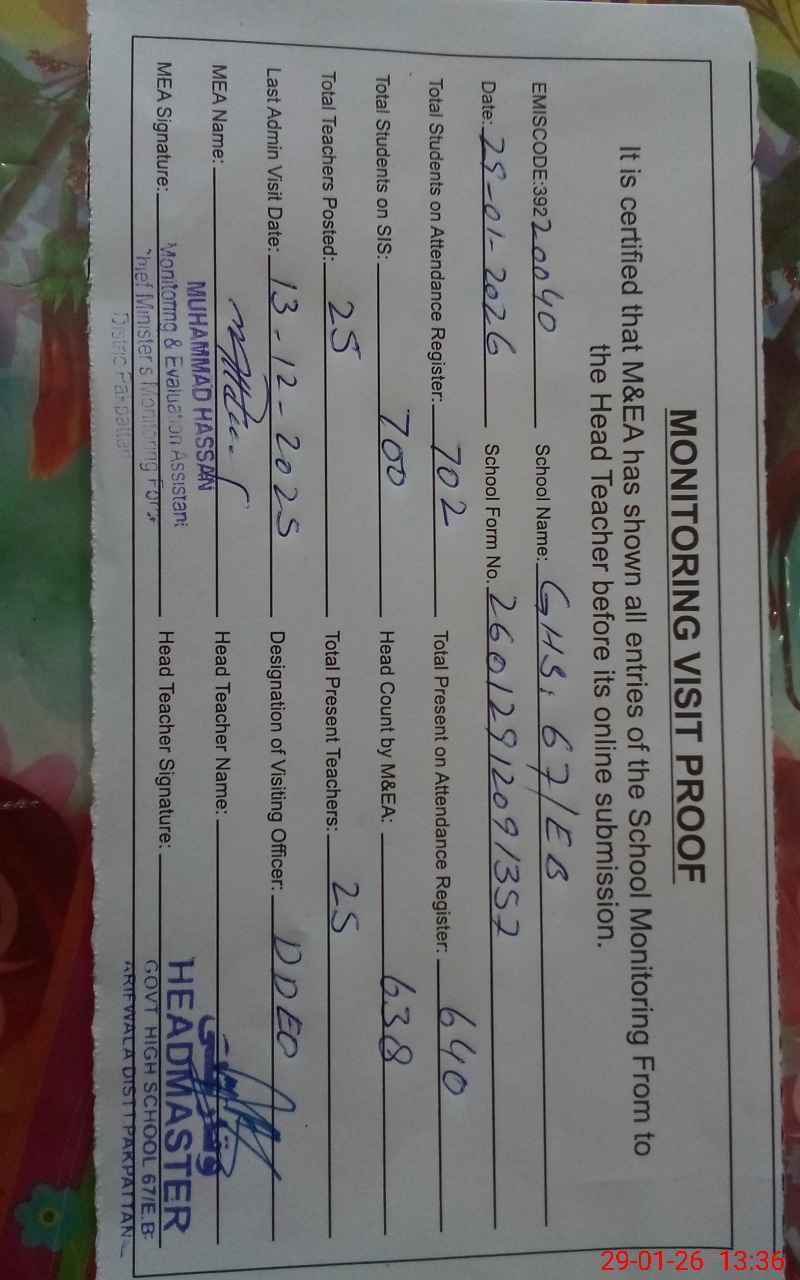 MONITORING VISIT PROOF
It is certified that M&EA has shown all entries of the School Monitoring From to
the Head Teacher before its online submission.
EMISCODE:39220040 School Name: GHS, 67/EB
Date: 29-01-2026 School Form No. 26012912091357
Total Students on Attendance Register: 702 Total Present on Attendance Register: 640
Total Students on SIS: 700 Head Count by M&EA: 638
Total Teachers Posted: 25 Total Present Teachers: 25
Last Admin Visit Date: 13-12-2025 Designation of Visiting Officer: DDEO
MEA Name: Head Teacher Name:
MEA Signature: Head Teacher Signature:
MUHAMMAD HASSAN
Monitoring & Evaluation Assistant
Chief Minister's Monitoring Force
District Pakpattan
HEADMASTER
GOVT HIGH SCHOOL 67/E.B
ARIFWALA DISTT PAKPATTAN
29-01-26 13:36